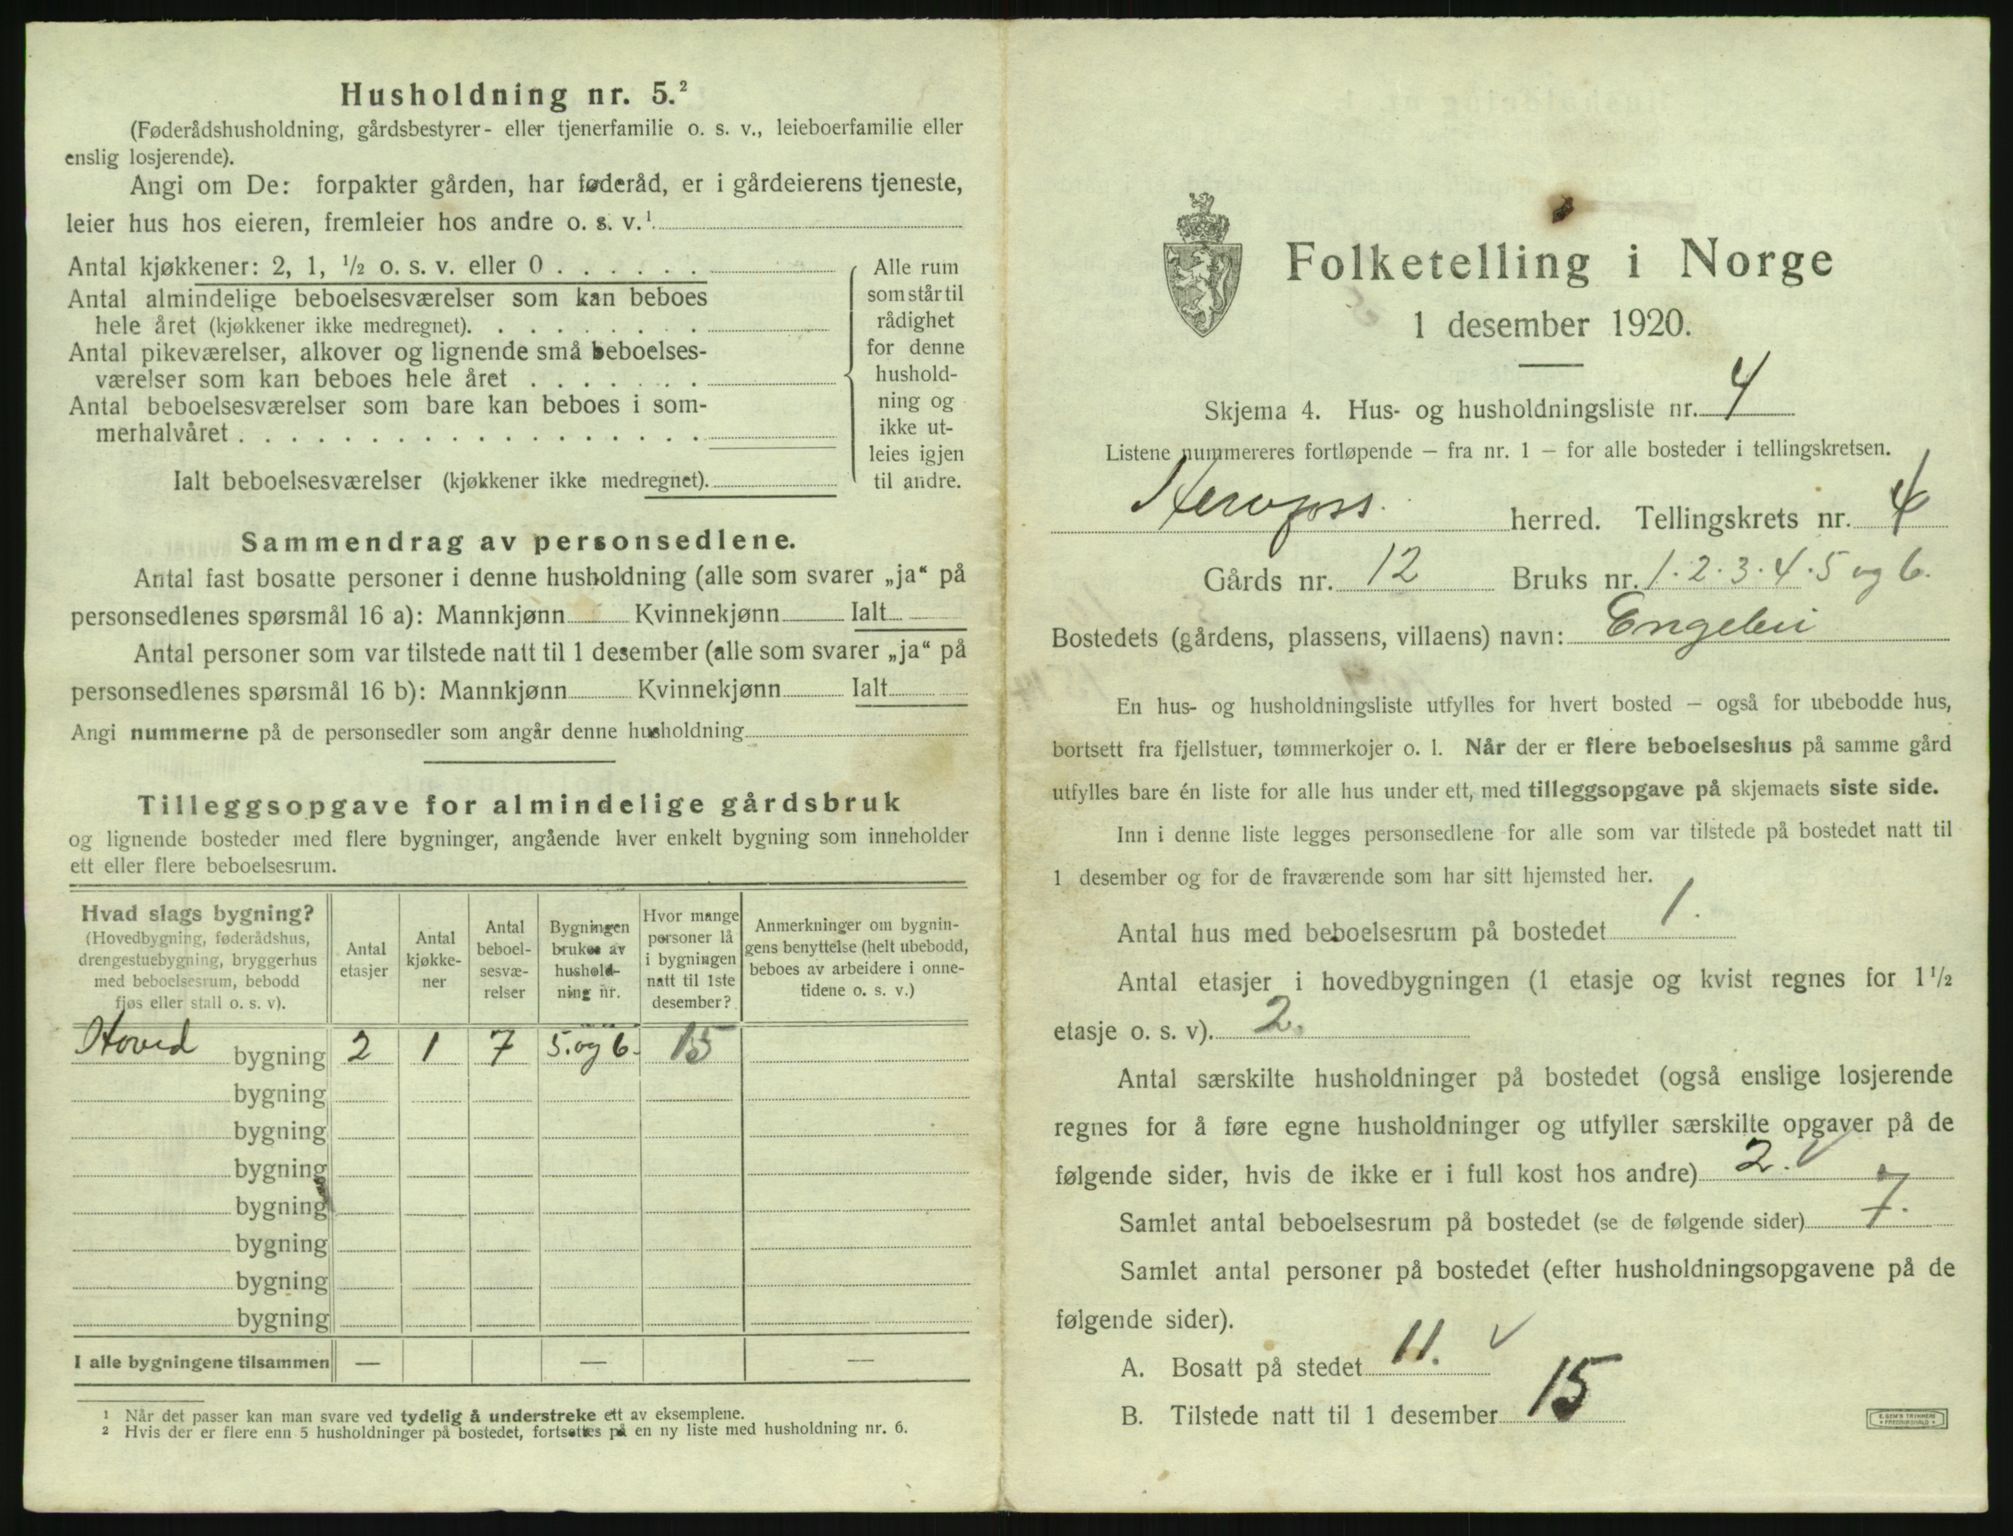 Husholdning nr. 5.²
(Føderådshusholdning, gårdsbestyrer- eller tjenerfamilie o. s. v., leieboerfamilie eller
enslig losjerende).
Angi om De: forpakter gården, har føderåd, er i gårdeierens tjeneste,
leier hus hos eieren, fremleier hos andre o. s. v.¹
Antal kjøkkener: 2, 1, ½ o. s. v. eller 0 . . . . . .
Antal almindelige beboelsesværelser som kan beboes
hele året (kjøkkener ikke medregnet). . . . . . . . .
Antal pikeværelser, alkover og lignende små beboelses-
værelser som kan beboes hele året . . . . . . .
Antal beboelsesværelser som bare kan beboes i som-
merhalvåret . . . . . . . . . . . . . . . . . .
Ialt beboelsesværelser (kjøkkener ikke medregnet).
Alle rum
som står til
rådighet
for denne
hushold-
ning og
ikke ut-
leies igjen
til andre.
Sammendrag av personsedlene.
Antal fast bosatte personer i denne husholdning (alle som svarer „ja“ på
personsedlenes spørsmål 16 a): Mannkjønn Kvinnekjønn Ialt
Antal personer som var tilstede natt til 1 desember (alle som svarer „ja“ på
personsedlenes spørsmål 16 b): Mannkjønn Kvinnekjønn Ialt
Angi nummerne på de personsedler som angår denne husholdning
Tilleggsopgave for almindelige gårdsbruk
og lignende bosteder med flere bygninger, angående hver enkelt bygning som inneholder
ett eller flere beboelsesrum.
Hvad slags bygning?
(Hovedbygning, føderådshus,
drengestuebygning, bryggerhus
med beboelsesrum, bebodd
fjøs eller stall o. s. v).
Antal
etasjer
Antal
kjøkke-
ner
Antal
beboel-
sesvæ-
relser
Bygningen
brukes av
hushold-
ning nr.
Hvor mange
personer lå
i bygningen
natt til 1ste
desember?
Anmerkninger om bygnin-
gens benyttelse (helt ubebodd,
beboes av arbeidere i onne-
tidene o. s. v.)
Hoved bygning 2 1 7 5. og 6. 15
bygning
bygning
bygning
bygning
bygning
bygning
bygning
I alle bygningene tilsammen — — —
¹ Når det passer kan man svare ved tydelig å understreke ett av eksemplene.
² Hvis der er flere enn 5 husholdninger på bostedet, fortsettes på en ny liste med husholdning nr. 6.
Folketelling i Norge
1 desember 1920.
Skjema 4. Hus- og husholdningsliste nr. 4
Listene nummereres fortløpende – fra nr. 1 – for alle bosteder i tellingskretsen.
herred. Tellingskrets nr. 4
Gårds nr. 12 Bruks nr. 1. 2. 3. 4. 5 og 6.
Bostedets (gårdens, plassens, villaens) navn: Engebu
En hus- og husholdningsliste utfylles for hvert bosted – også for ubebodde hus,
bortsett fra fjellstuer, tømmerkojer o. l. Når der er flere beboelseshus på samme gård
utfylles bare én liste for alle hus under ett, med tilleggsopgave på skjemaets siste side.
Inn i denne liste legges personsedlene for alle som var tilstede på bostedet natt til
1 desember og for de fraværende som har sitt hjemsted her.
Antal hus med beboelsesrum på bostedet 1.
Antal etasjer i hovedbygningen (1 etasje og kvist regnes for 1½
etasje o. s. v). 2.
Antal særskilte husholdninger på bostedet (også enslige losjerende
regnes for å føre egne husholdninger og utfyller særskilte opgaver på de
følgende sider, hvis de ikke er i full kost hos andre) 2. ✓
Samlet antal beboelsesrum på bostedet (se de følgende sider) 7.
Samlet antal personer på bostedet (efter husholdningsopgavene på de
følgende sider).
A. Bosatt på stedet 11. ✓
B. Tilstede natt til 1 desember 15